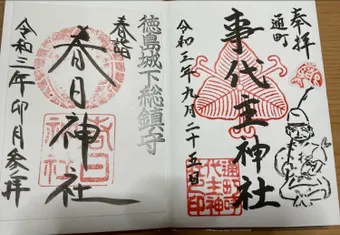 奉拝
通町
事代主神社
令和三年九月二十五日
通町
事代主神
社印
徳島城下総鎮守
春詣
春日神社
春日
神社
令和三年卯月参拝